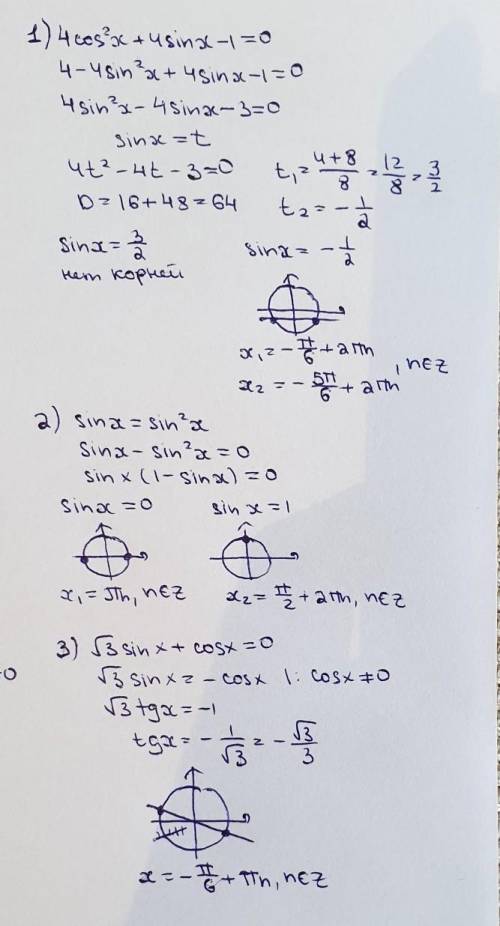 1) 4cos²x + 4sinx - 1 = 0
4 - 4sin²x + 4sinx - 1 = 0
4sin²x - 4sinx - 3 = 0
sinx = t
4t² - 4t - 3 = 0
D = 16 + 48 = 64
t₁ = (4+8)/8 = 12/8 = 3/2
t₂ = -1/2
sinx = 3/2
нет корней
sinx = -1/2
x₁ = -π/6 + 2πn
x₂ = -5π/6 + 2πn
, n∈Z
2) sinx = sin²x
sinx - sin²x = 0
sinx (1 - sinx) = 0
sinx = 0
sin x = 1
x₁ = πn, n∈Z
x₂ = π/2 + 2πn, n∈Z
3) √3 sinx + cosx = 0
0
√3 sinx = - cosx |: cosx ≠ 0
√3 tgx = -1
tgx = -1/√3 = -√3/3
x = -π/6 + πn, n∈Z